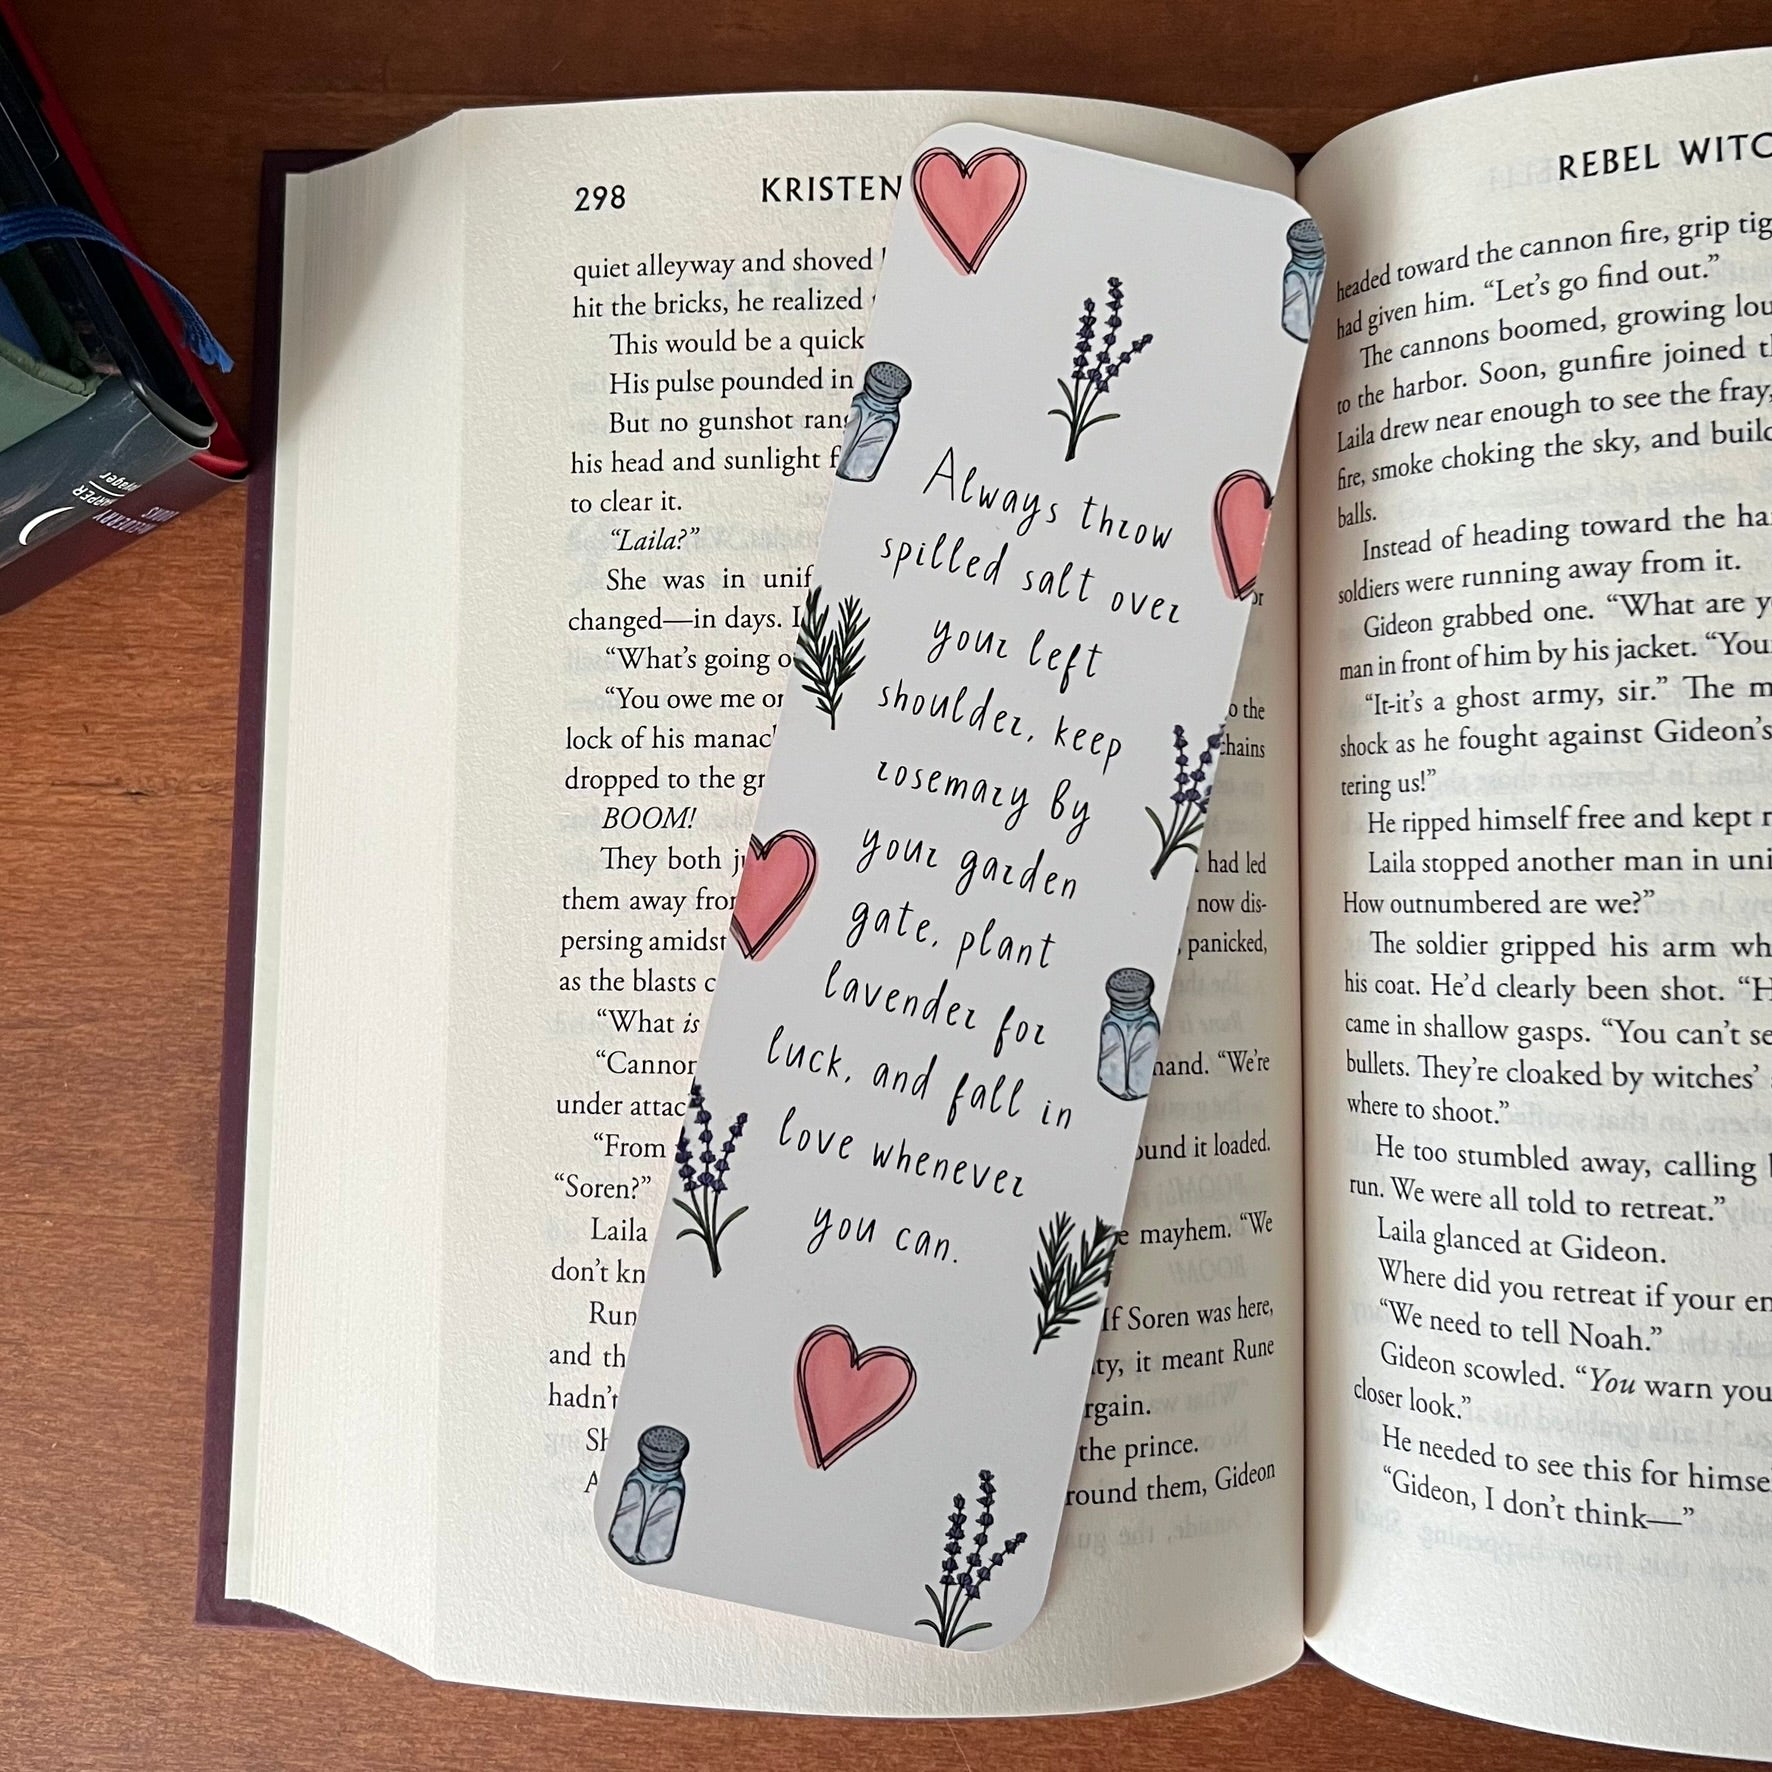 298 KRISTEN
quiet alleyway and shoved
hit the bricks, he realized
This would be a quick
His pulse pounded in
But no gunshot rang
his head and sunlight
to clear it.
“Laila?”
She was in
changed—in days.
“What’s going
“You owe me
lock of his
dropped to the
BOOM!
They both
them away from
persing amidst
as the blasts
“What is
“Cannon
under
“From
“Soren?”
Laila
don’t
Run
and
hadn’t
Always throw
spilled salt over
your left
shoulder, keep
rosemary by
your garden
gate, plant
lavender for
luck, and fall in
love whenever
you can.
or
the
chains
had led
now dis-
panicked,
hand. “We’re
it loaded.
mayhem. “We
If Soren was here,
it meant Rune
the prince.
them, Gideon
REBEL
headed toward the cannon fire, grip
had given him. “Let’s go find out.”
The cannons boomed, growing
to the harbor. Soon, gunfire joined
Laila drew near enough to see the fray,
fire, smoke choking the sky, and
balls.
Instead of heading toward the
soldiers were running away from it.
Gideon grabbed one. “What are
man in front of him by his jacket. “You
“It-it’s a ghost army, sir.” The
shock as he fought against Gideon’s
tering us!”
He ripped himself free and kept
Laila stopped another man in
How outnumbered are we?”
The soldier gripped his arm
his coat. He’d clearly been shot.
came in shallow gasps. “You can’t
bullets. They’re cloaked by witches’
where to shoot.”
He too stumbled away, calling
run. We were all told to retreat.”
Laila glanced at Gideon.
Where did you retreat if your
“We need to tell Noah.”
Gideon scowled. “You warn
closer look.”
He needed to see this for
“Gideon, I don’t think—”
HARPER
Voyager